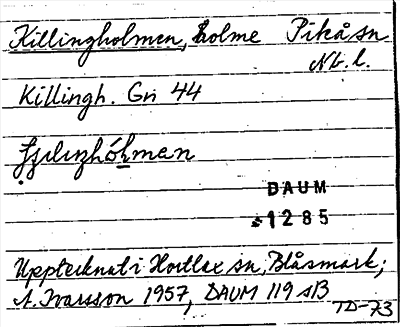 Killingholmen, holme Piteå sn
Nb. l.
Killingh. Gri 44
DAUM
1285
Upptecknat i Hortlax sn, Blåsmark;
A. Ivarsson 1957, DAUM 119 s13
TD-73